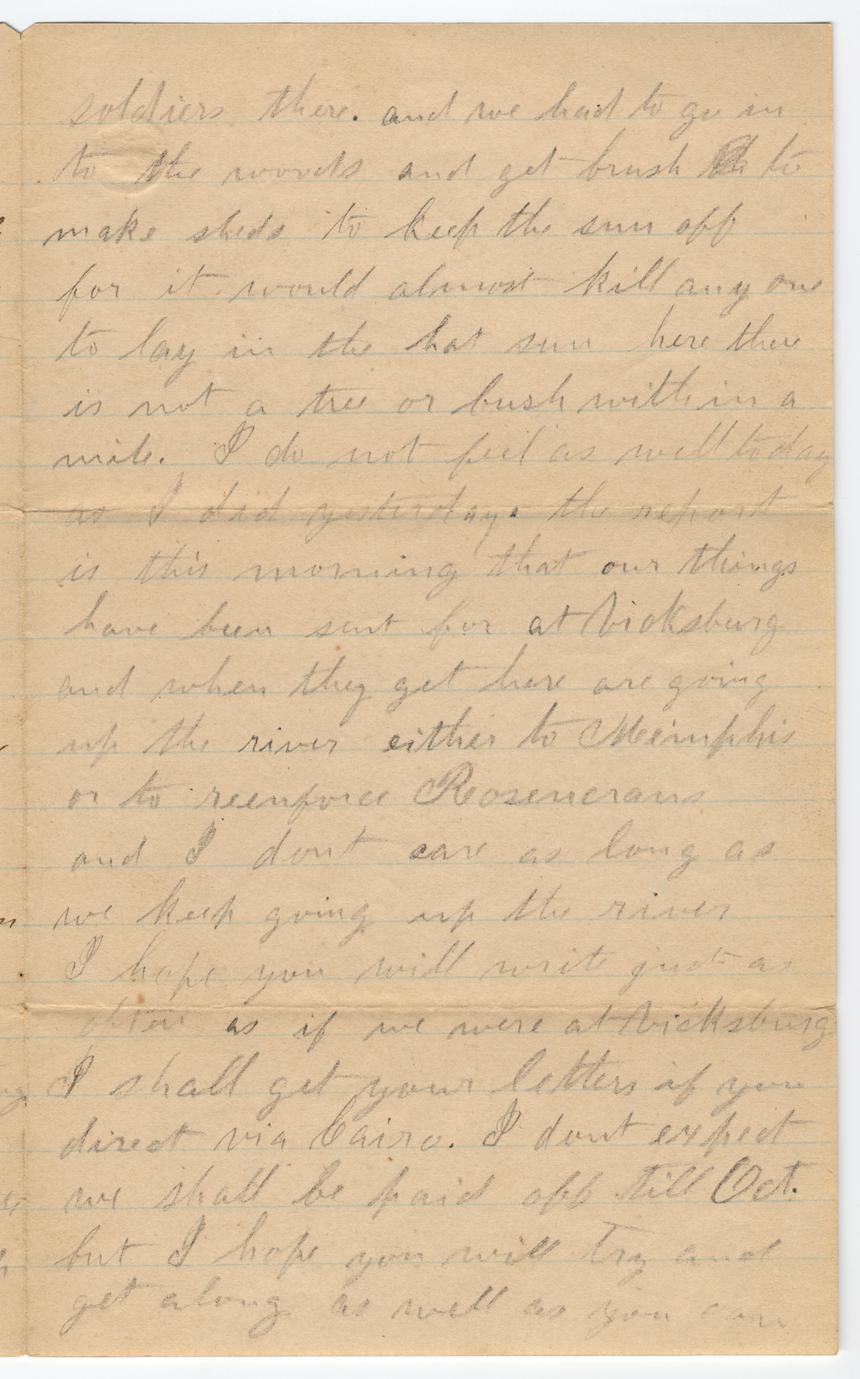 soldiers there. and we had to go in
to the woods and get brush to
make sheds to keep the sun off
for it would almost kill any one
to lay in the hot sun here there
is not a tree or bush within a
mile. I do not feel as well today
as I did yesterday. the report
is this morning that our things
have been sent for at Vicksburg
and when they get here are going
up the river either to Memphis
or to reenforce Rosencrans
and I dont care as long as
we keep going up the river
I hope you will write just as
often as if we were at Vicksburg
I shall get your letters if you
direct via Cairo. I dont expect
we shall be paid off till Oct.
but I hope you will try and
get along as well as you can